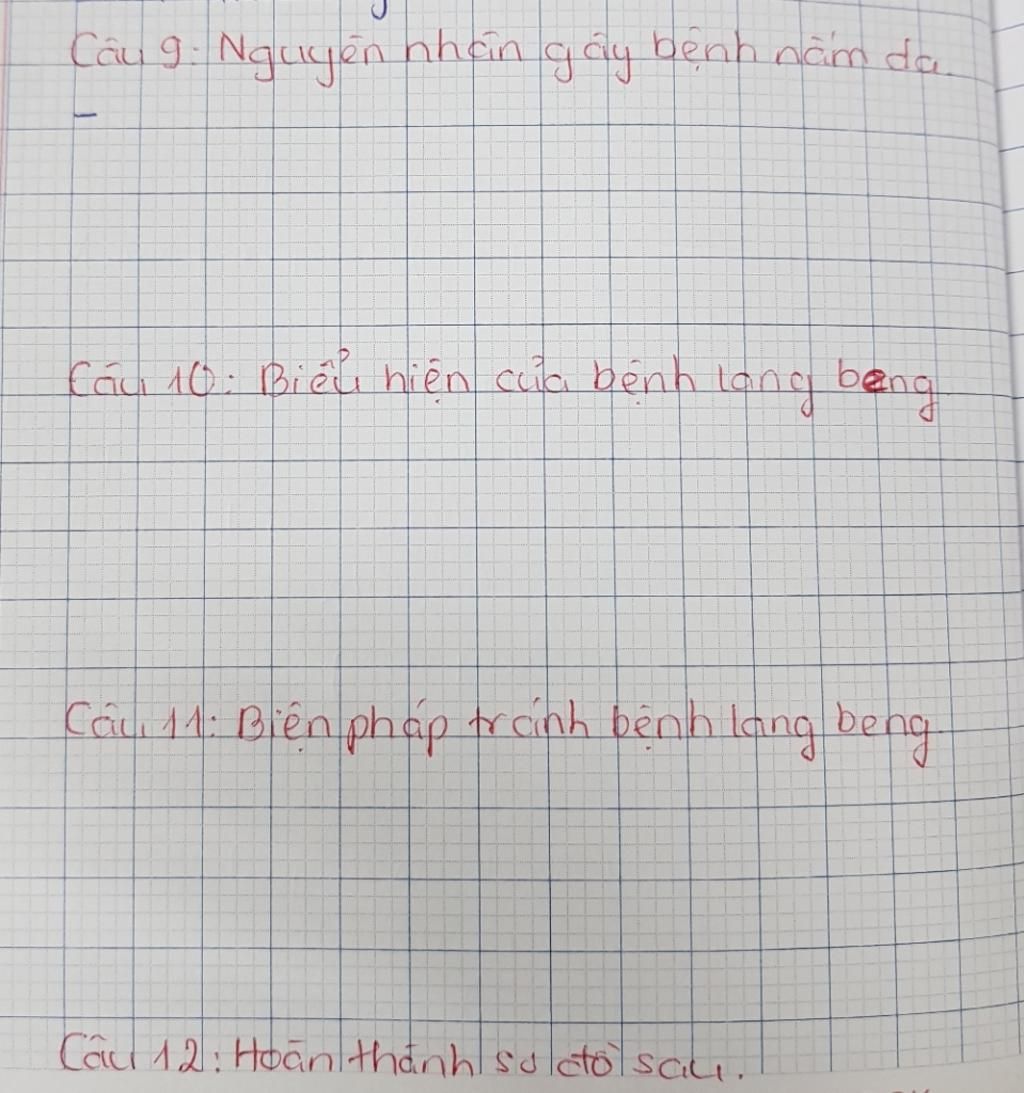 Câu 9: Nguyên nhân gây bệnh nấm da.
-
Câu 10: Biểu hiện của bệnh lang beng
Câu 11: Biện pháp tránh bệnh lang beng
Câu 12: Hoàn thành sơ đồ sau.